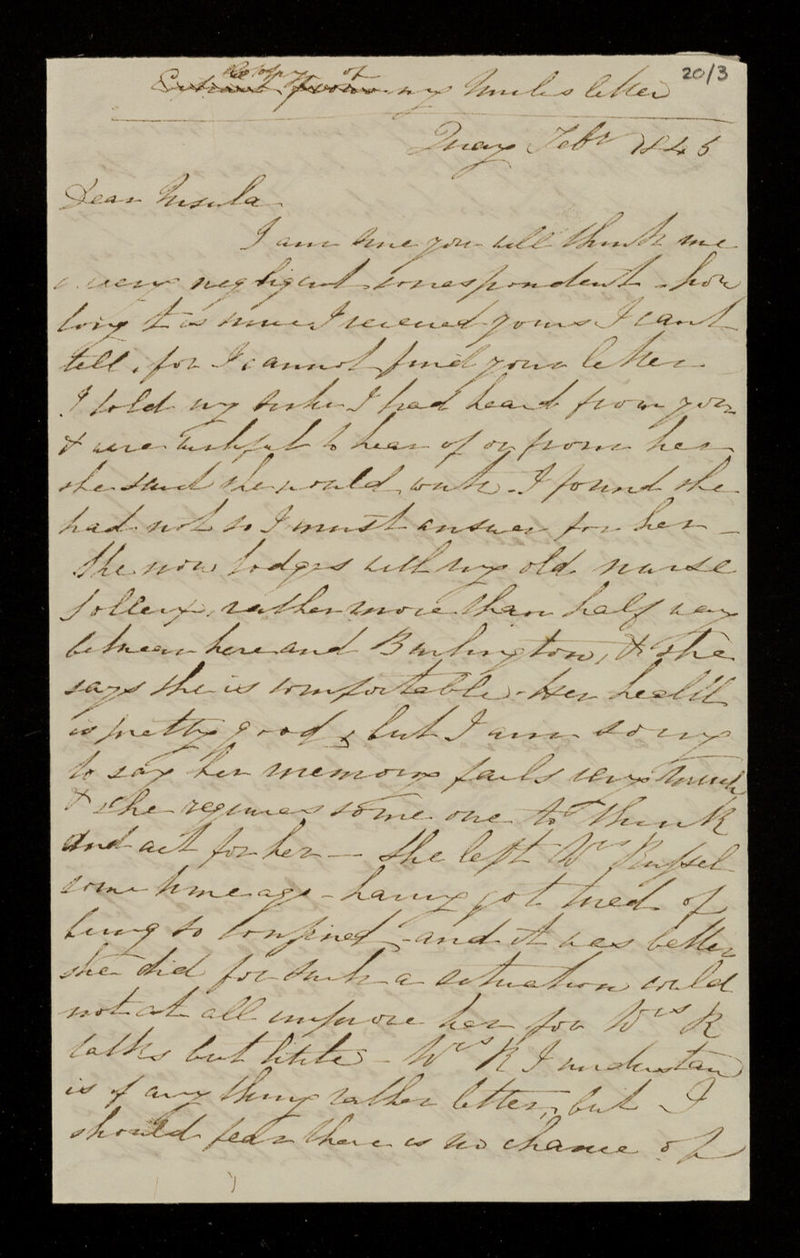 20/3
Copy of
Extract from my Uncles letter
Quay Febr 1845
Dear Ursula
I am sure you will think me
a very negligent correspondent - how
long it is since I received yours I cant
tell, for I cannot find your letter
I told my sister I had heard from you
& were wishful to hear of or from her
she said she would write. I found she
had not so I must answer for her -
She now lodges with my old nurse
rather more than half way
between here and Burlington, & she
says she is comfortable. Her health
is pretty good, but I am sorry
to say her memory fails very much
& she requires some one to think
and act for her - She left Mrs Russel
some time ago - having got tired of
being so confined - and it was better
she did for such a situation could
not at all improve her for Mrs R
talks but little - Mrs R I understand
is if any thing rather better, but I
should fear there is no chance of